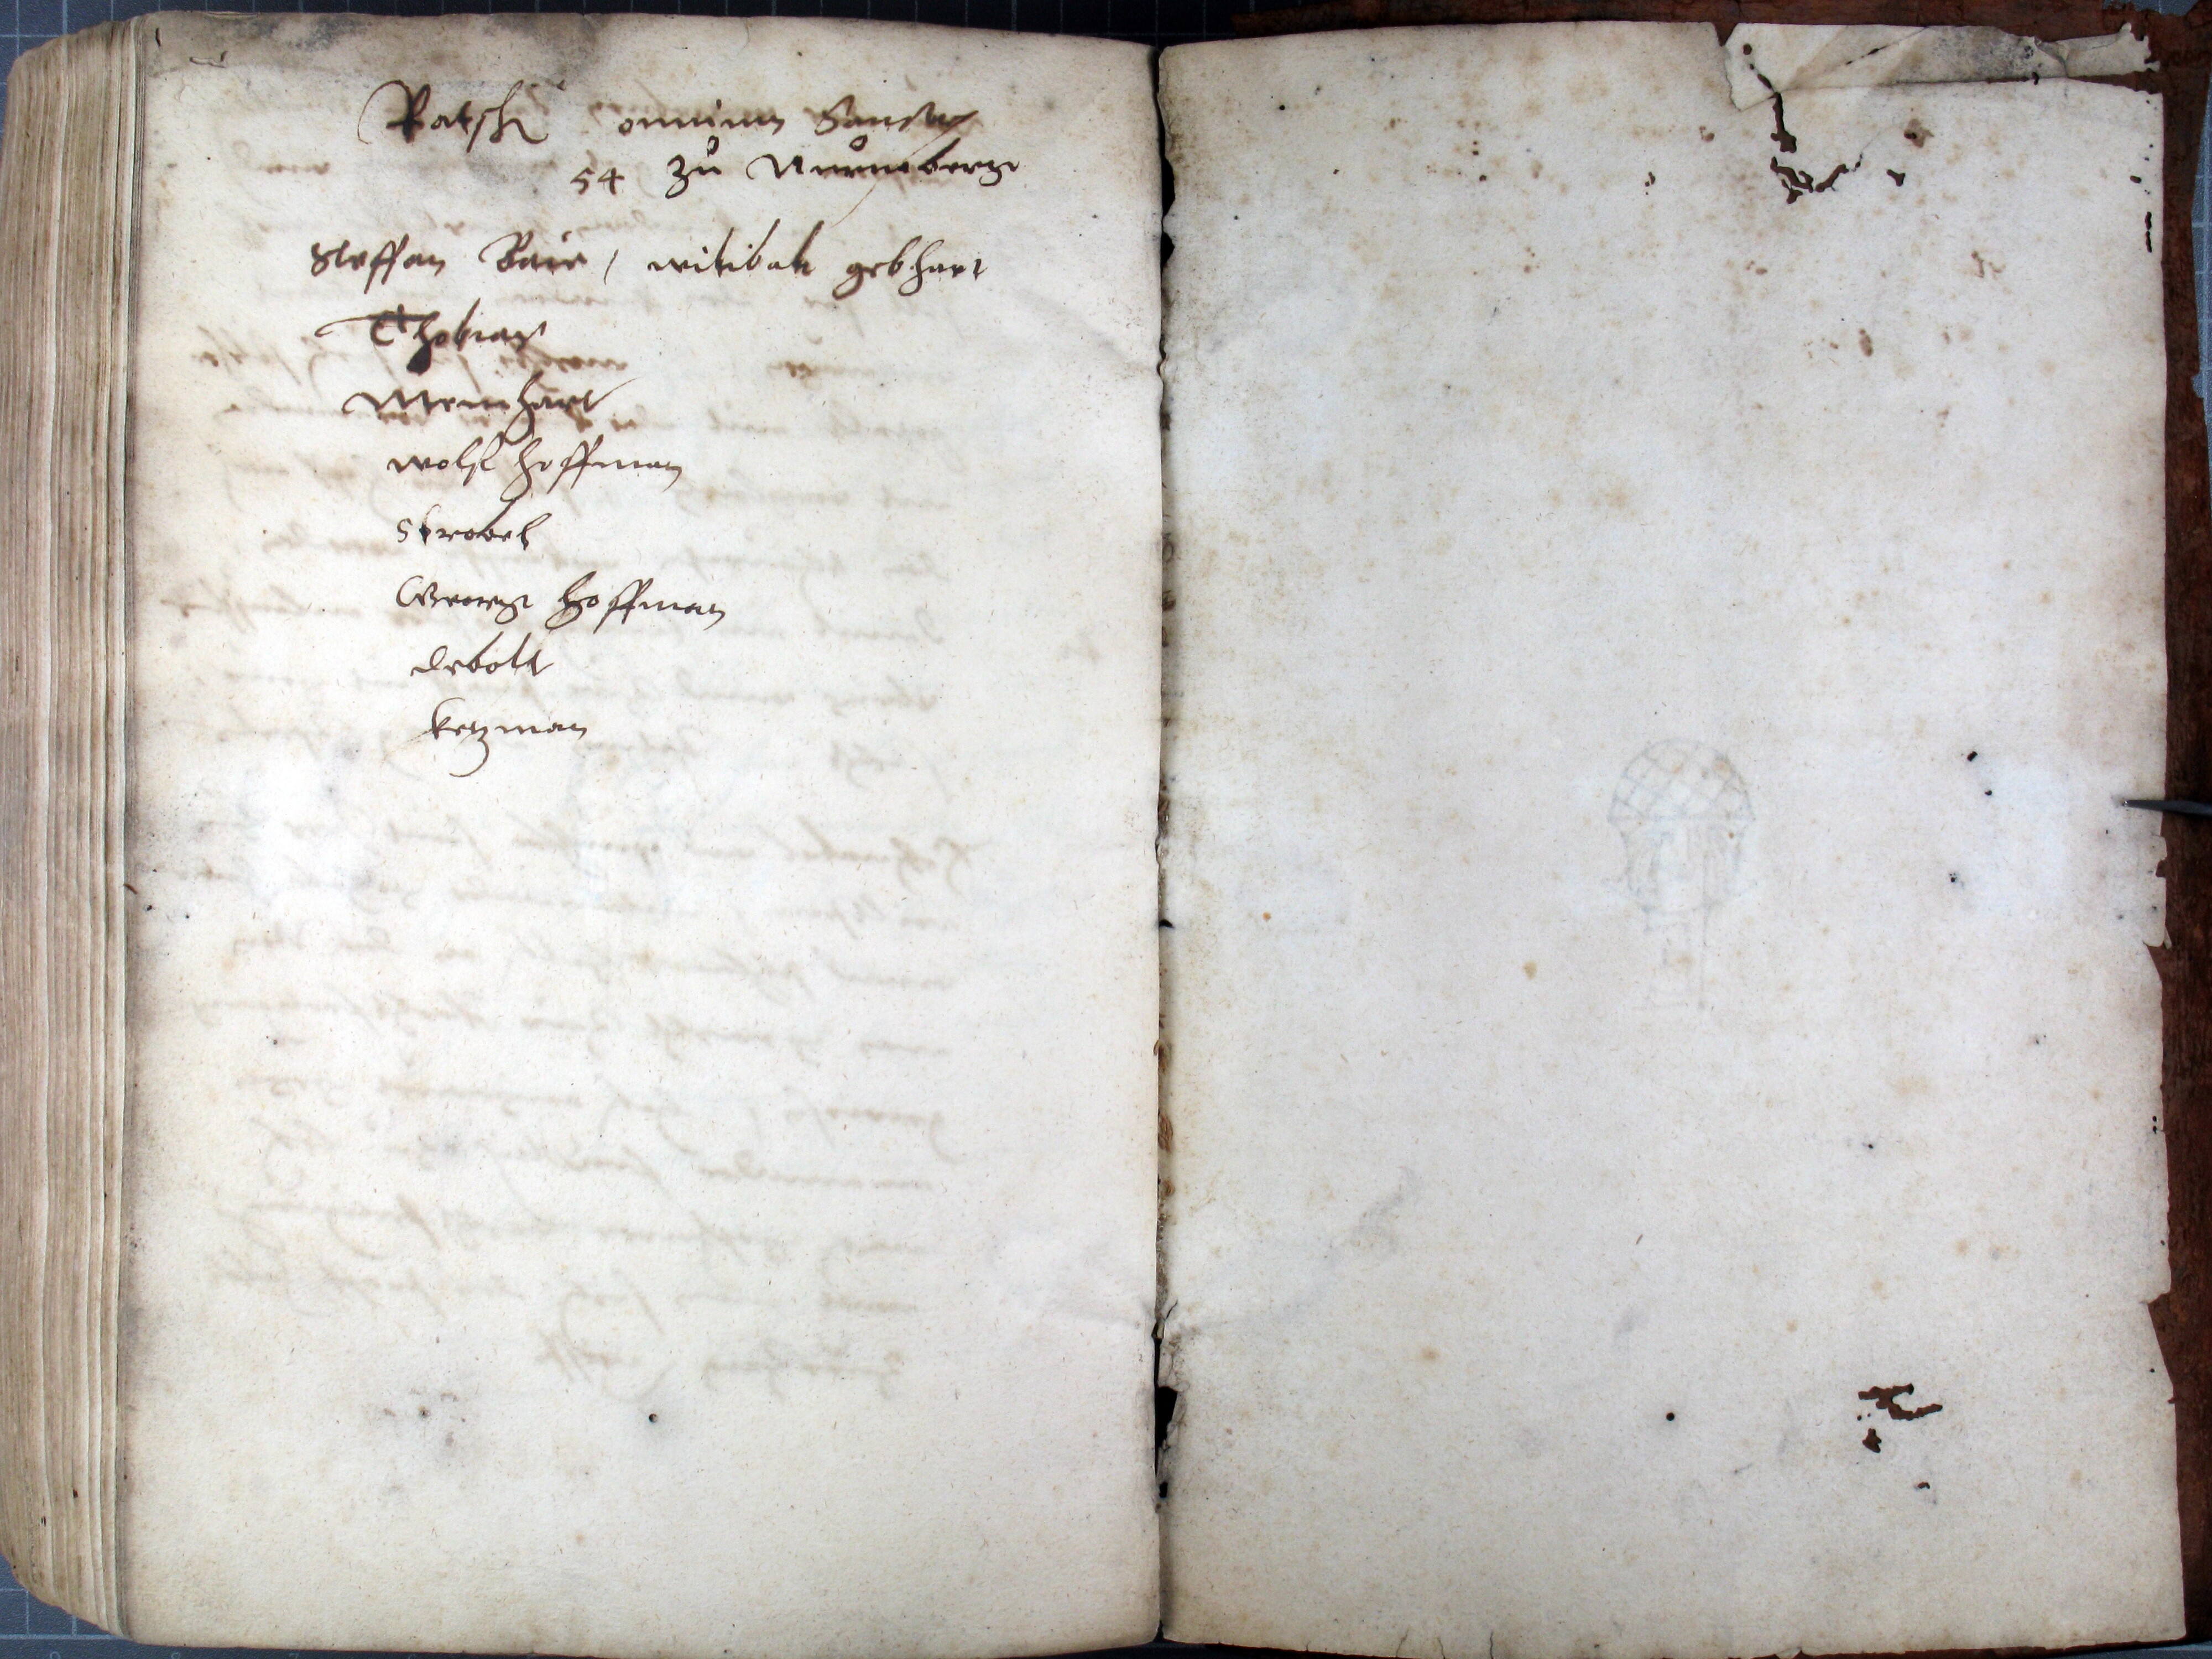 Ratschl omnium Sanctor
54 Zů Nůrmberg
Steffan Baur / witibalt gebhart
Thobias
Meinhart
wolff hoffman
Strobel
Georg hoffman
Debolt
ketzman